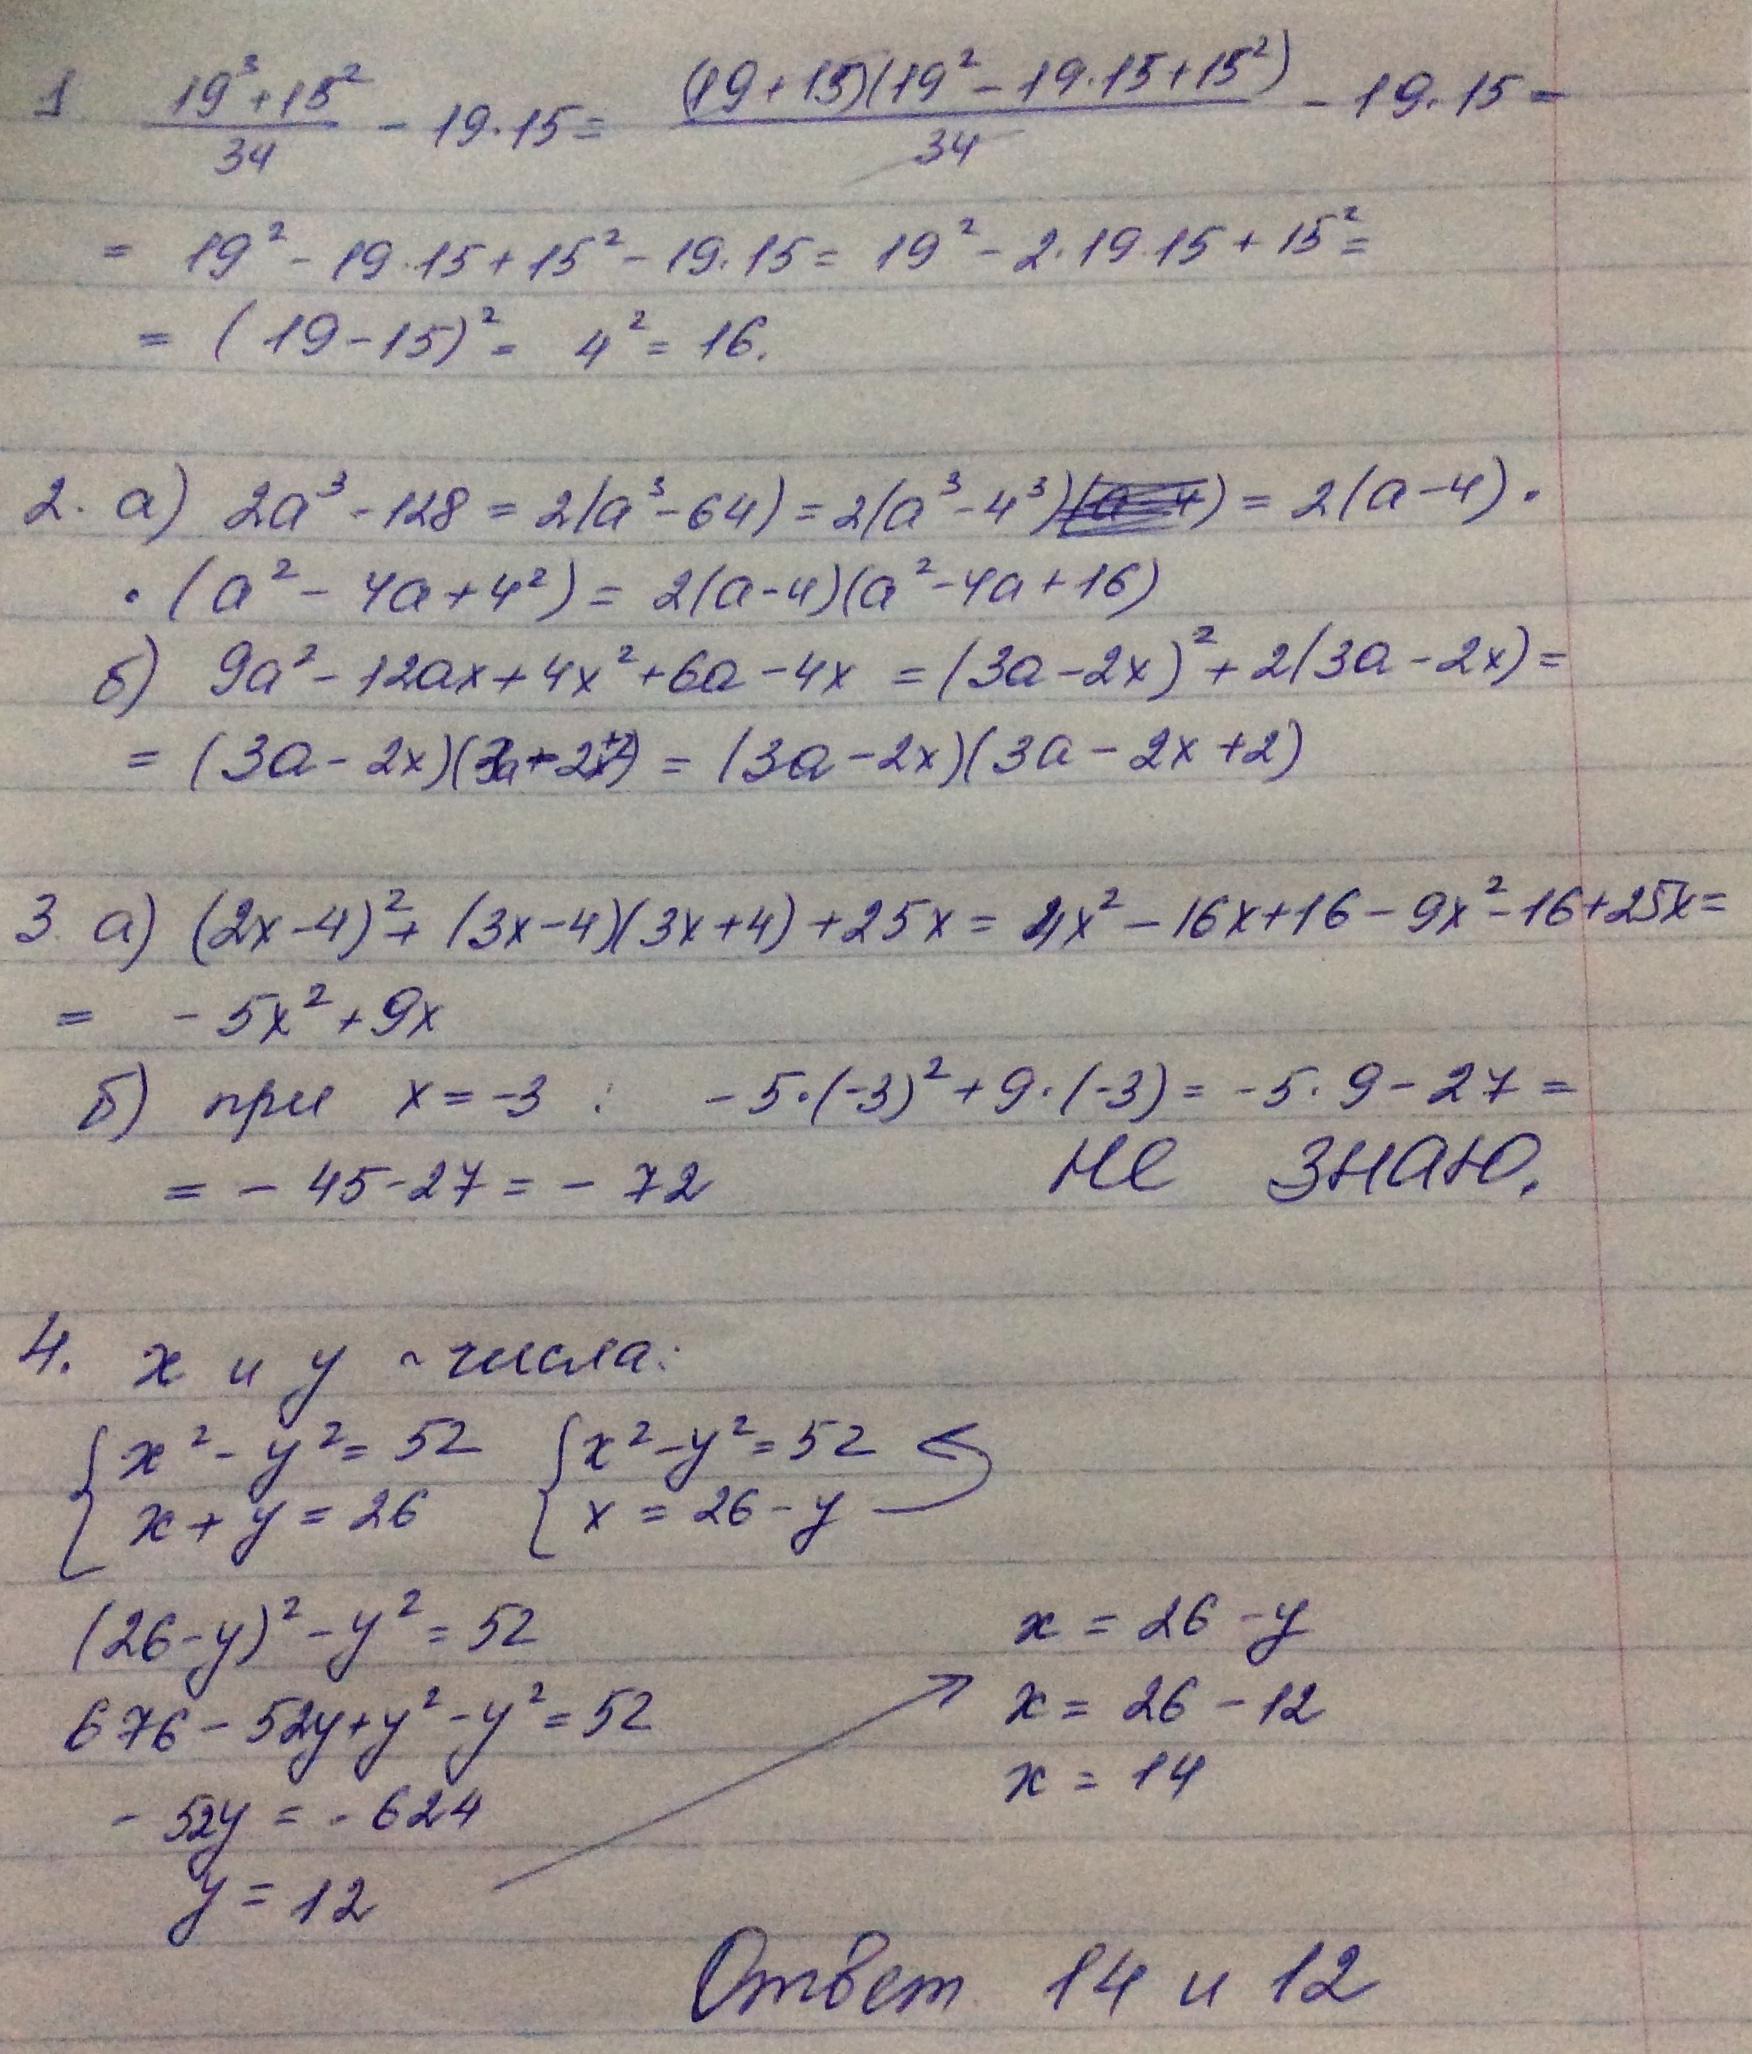 1 (19³+15²)/34 - 19·15 = (19+15)(19² - 19·15+15²)/34 - 19·15 =
= 19² - 19·15 + 15² - 19·15 = 19² - 2·19·15 + 15² =
= (19-15)² = 4² = 16.
2. а) 2a³ - 128 = 2(a³-64) = 2(a³-4³) = 2(a-4)·
·(a² - 4a + 4²) = 2(a-4)(a²-4a+16)
б) 9a² - 12ax + 4x² + 6a - 4x = (3a-2x)² + 2(3a-2x) =
= (3a - 2x)(3a-2x+2) = (3a-2x)(3a-2x+2)
3. а) (2x-4)² + (3x-4)(3x+4) + 25x = 4x² - 16x + 16 - 9x² - 16 + 25x =
= -5x² + 9x
б) при x = -3 : -5·(-3)² + 9·(-3) = -5·9 - 27 =
= - 45-27 = - 72 не знаю.
4. x и y - числа:
{x² - y² = 52 {x² - y² = 52
x + y = 26 x = 26 - y
(26-y)² - y² = 52 x = 26 - y
676 - 52y + y² - y² = 52 x = 26 - 12
- 52y = - 624 x = 14
y = 12
Ответ 14 и 12